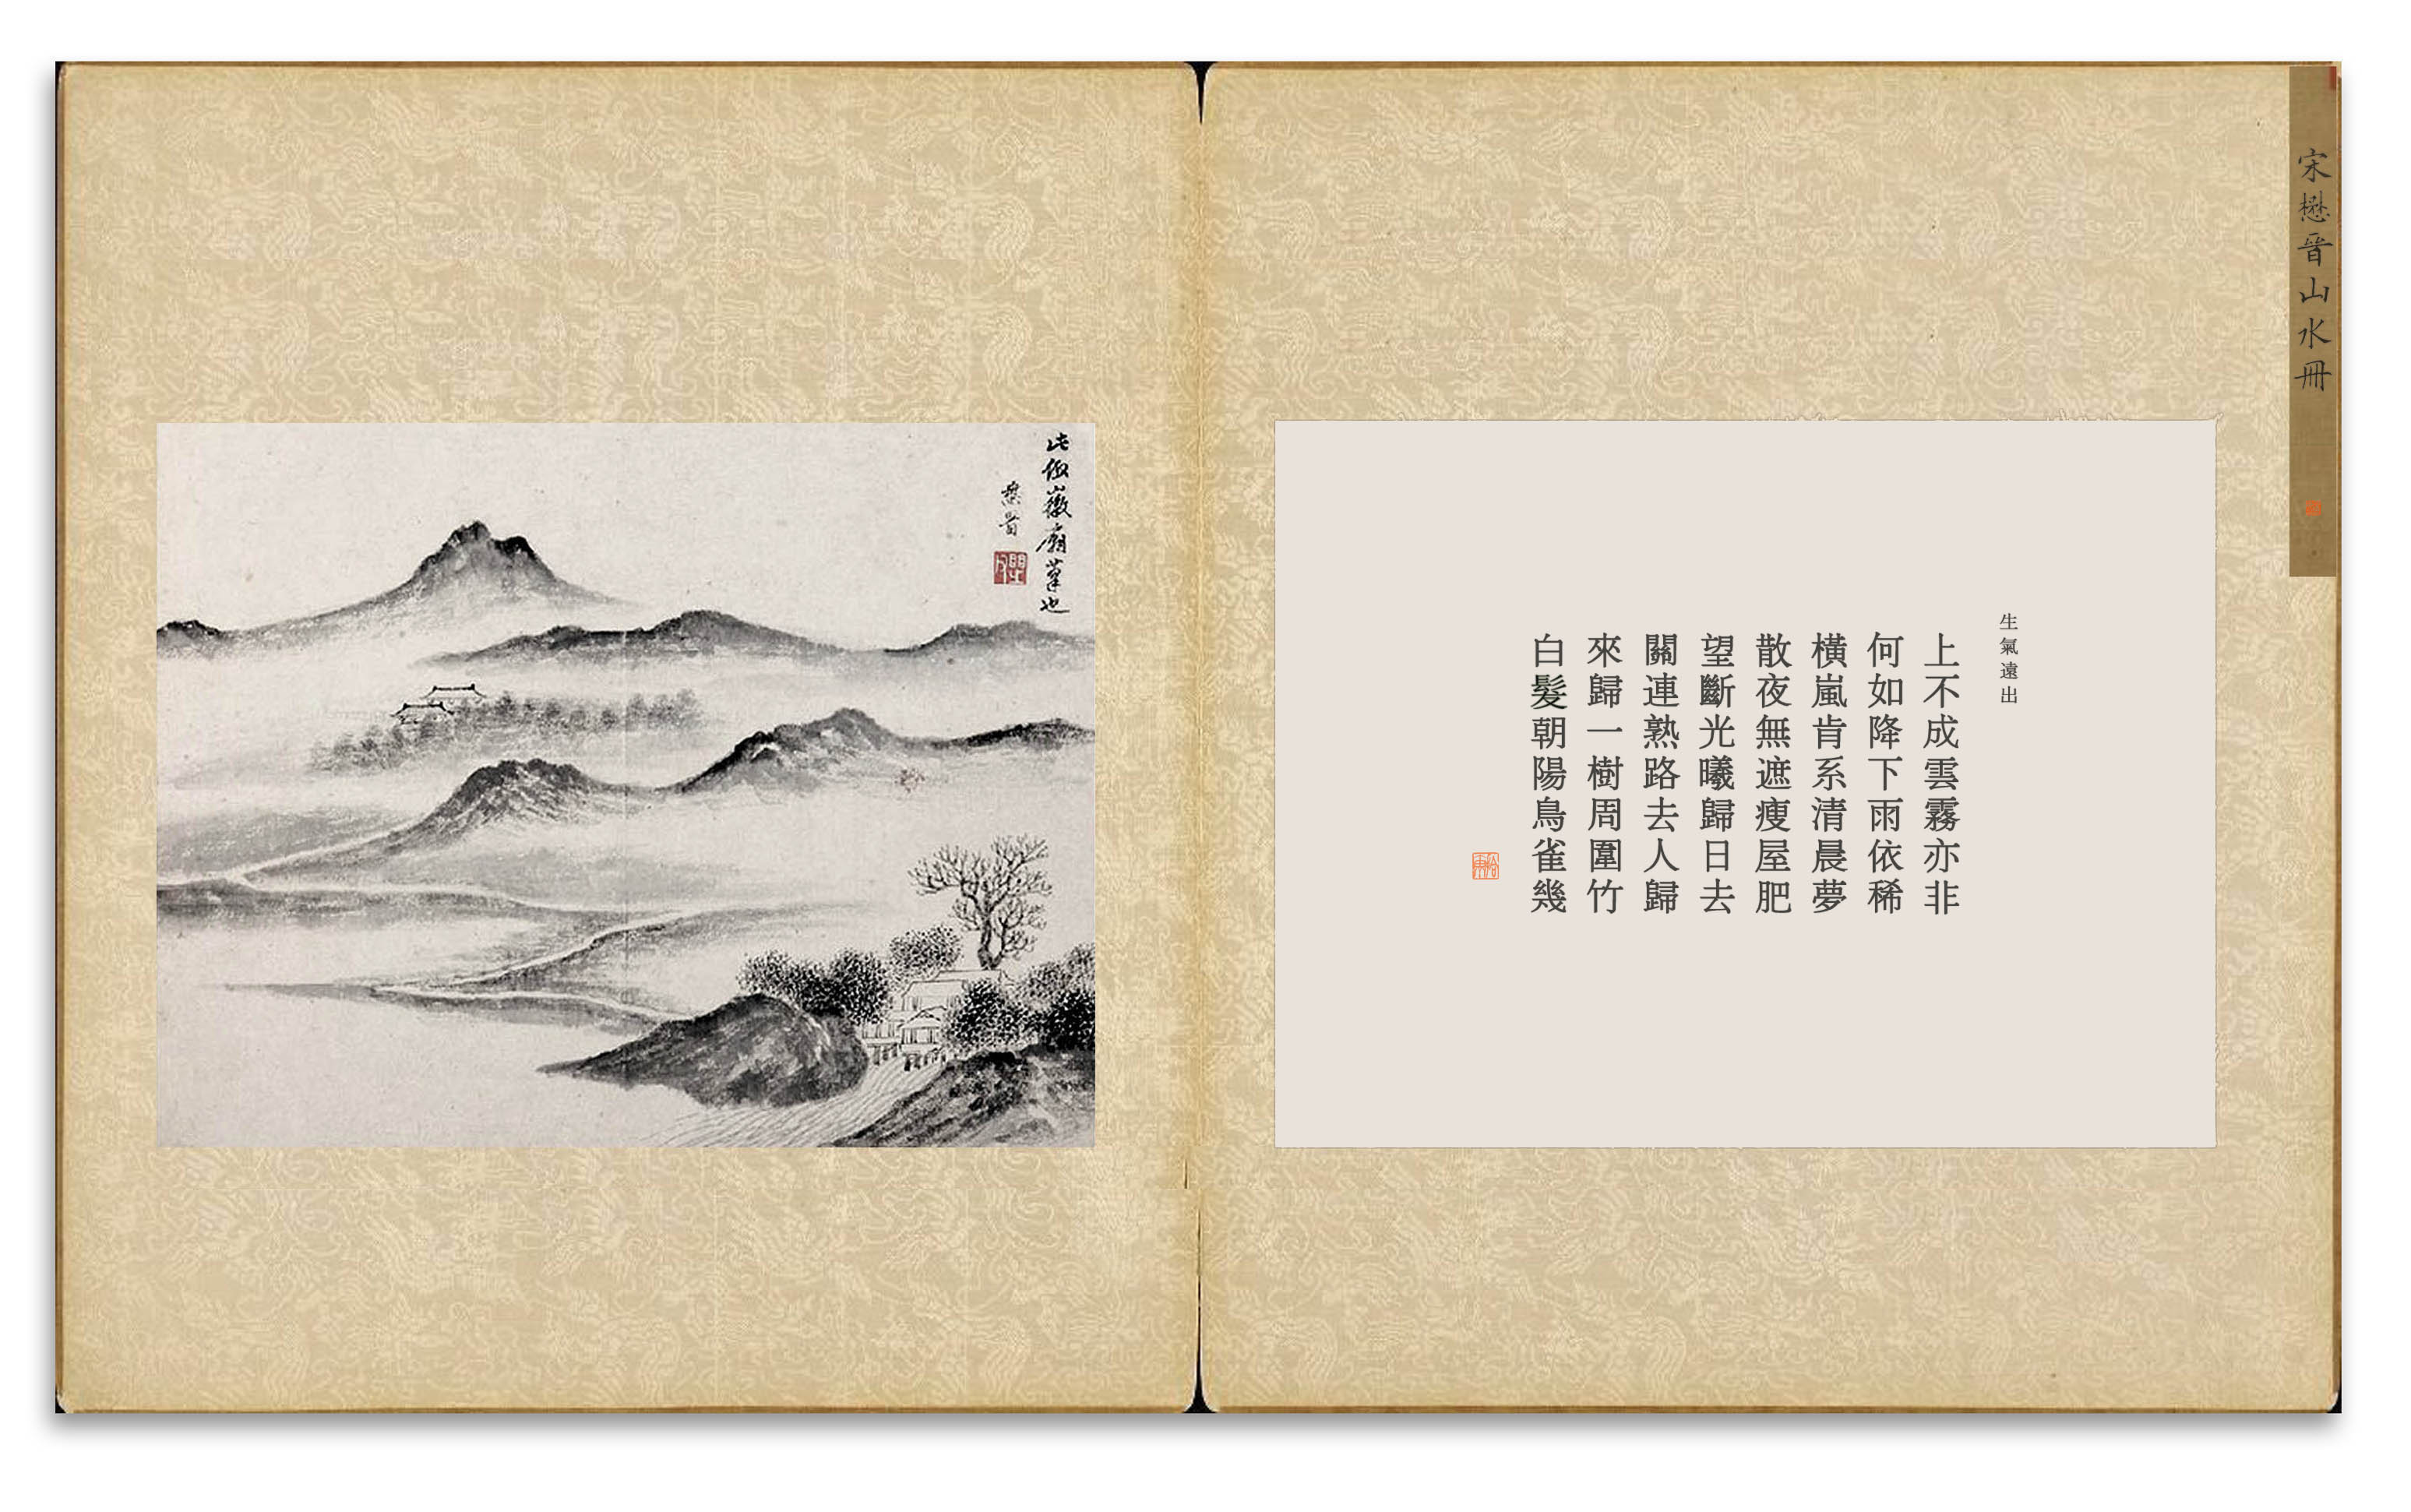 宋懋晉山水冊
生氣遠出
上不成雲霧亦非
何如降下雨依稀
橫嵐肯系清晨夢
散夜無遮瘦屋肥
望斷光曦歸日去
關連熟路去人歸
來歸一樹周圍竹
白髮朝陽鳥雀幾
此仿巚徽廟筆也
懋晉